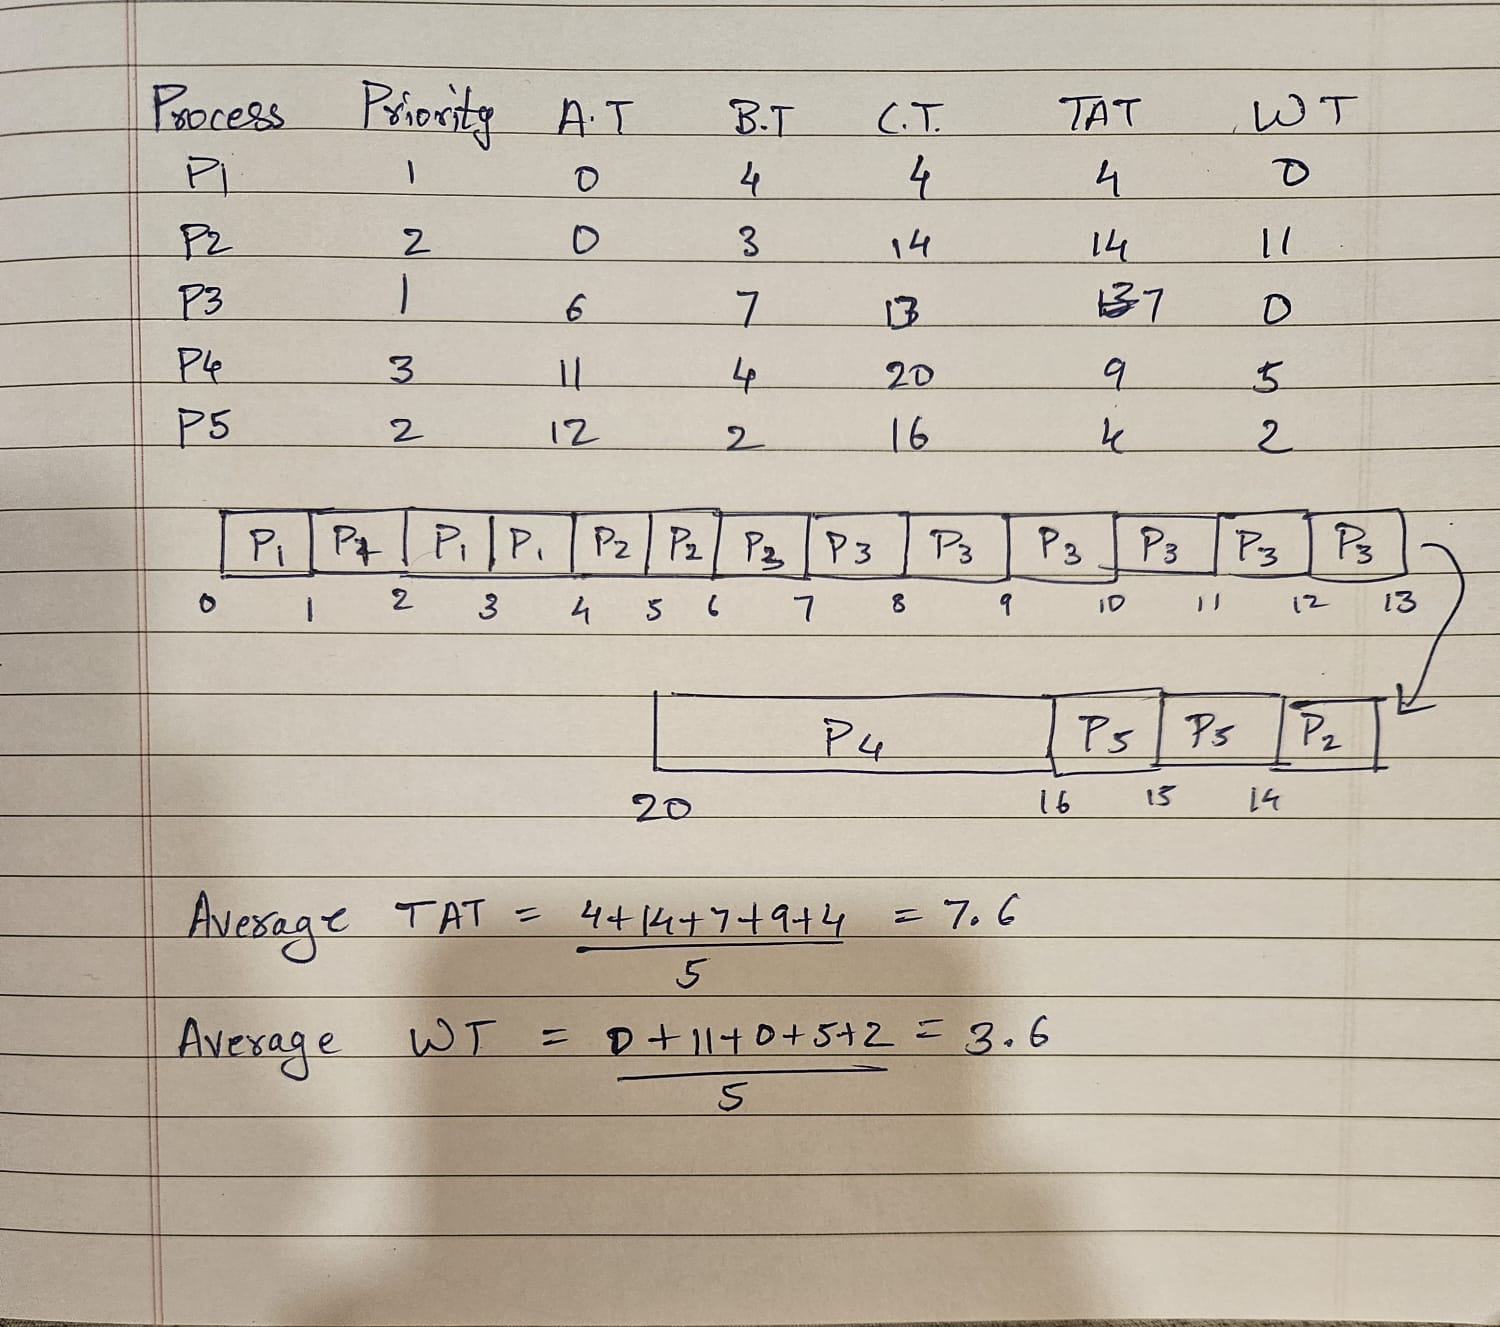 Process Priority A.T B.T C.T. TAT WT
P1 1 0 4 4 4 0
P2 2 0 3 14 14 11
P3 1 6 7 13 7 0
P4 3 11 4 20 9 5
P5 2 12 2 16 4 2
P1 P1 P1 P1 P2 P2 P3 P3 P3 P3 P3 P3 P3
0 1 2 3 4 5 6 7 8 9 10 11 12 13
P4 P5 P5 P2
20 16 15 14
Average TAT = 4+14+7+9+4 = 7.6
5
Average WT = 0+11+0+5+2 = 3.6
5